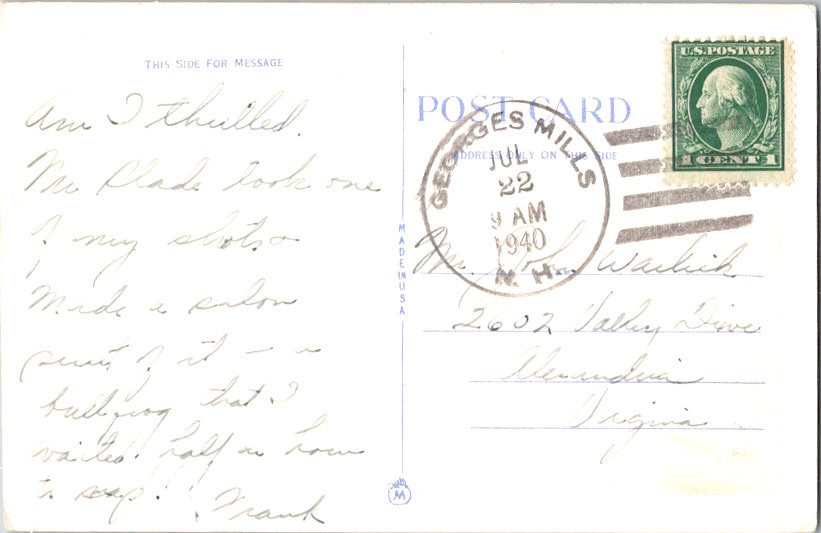 THIS SIDE FOR MESSAGE
Am I thrilled.
Mr Slade took one
of my shots &
Made a salon
print of it – a
bullfrog that I
waited half an hour
to snap!
Frank
POST CARD
ADDRESS ONLY ON THIS SIDE
MADE IN USA
GEORGES MILLS
JUL
22
9 AM
1940
N. H.
U.S. POSTAGE
1 CENT 1
Mr. John
2602 Valley Drive
Alexandria
Virginia
M